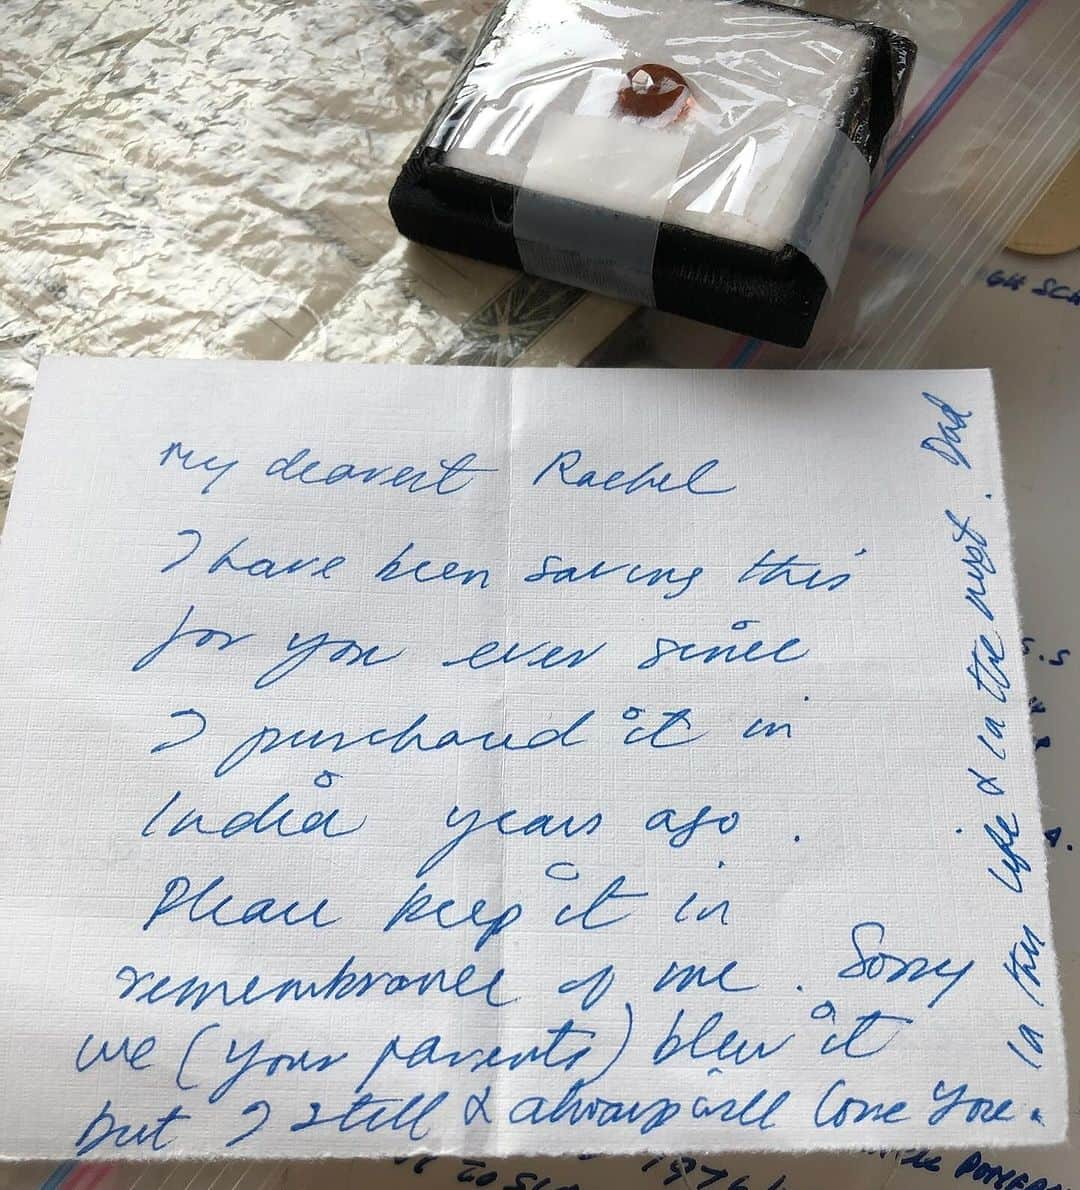 My dearest Rachel
I have been saving this
for you ever since
I purchased it in
India years ago.
Please keep it in
remembrance of me. Sorry
we (your parents) blew it
but I still & always will love you.
in this life & in the next. Dad
GH SCH
S.S
A.
TO
1976